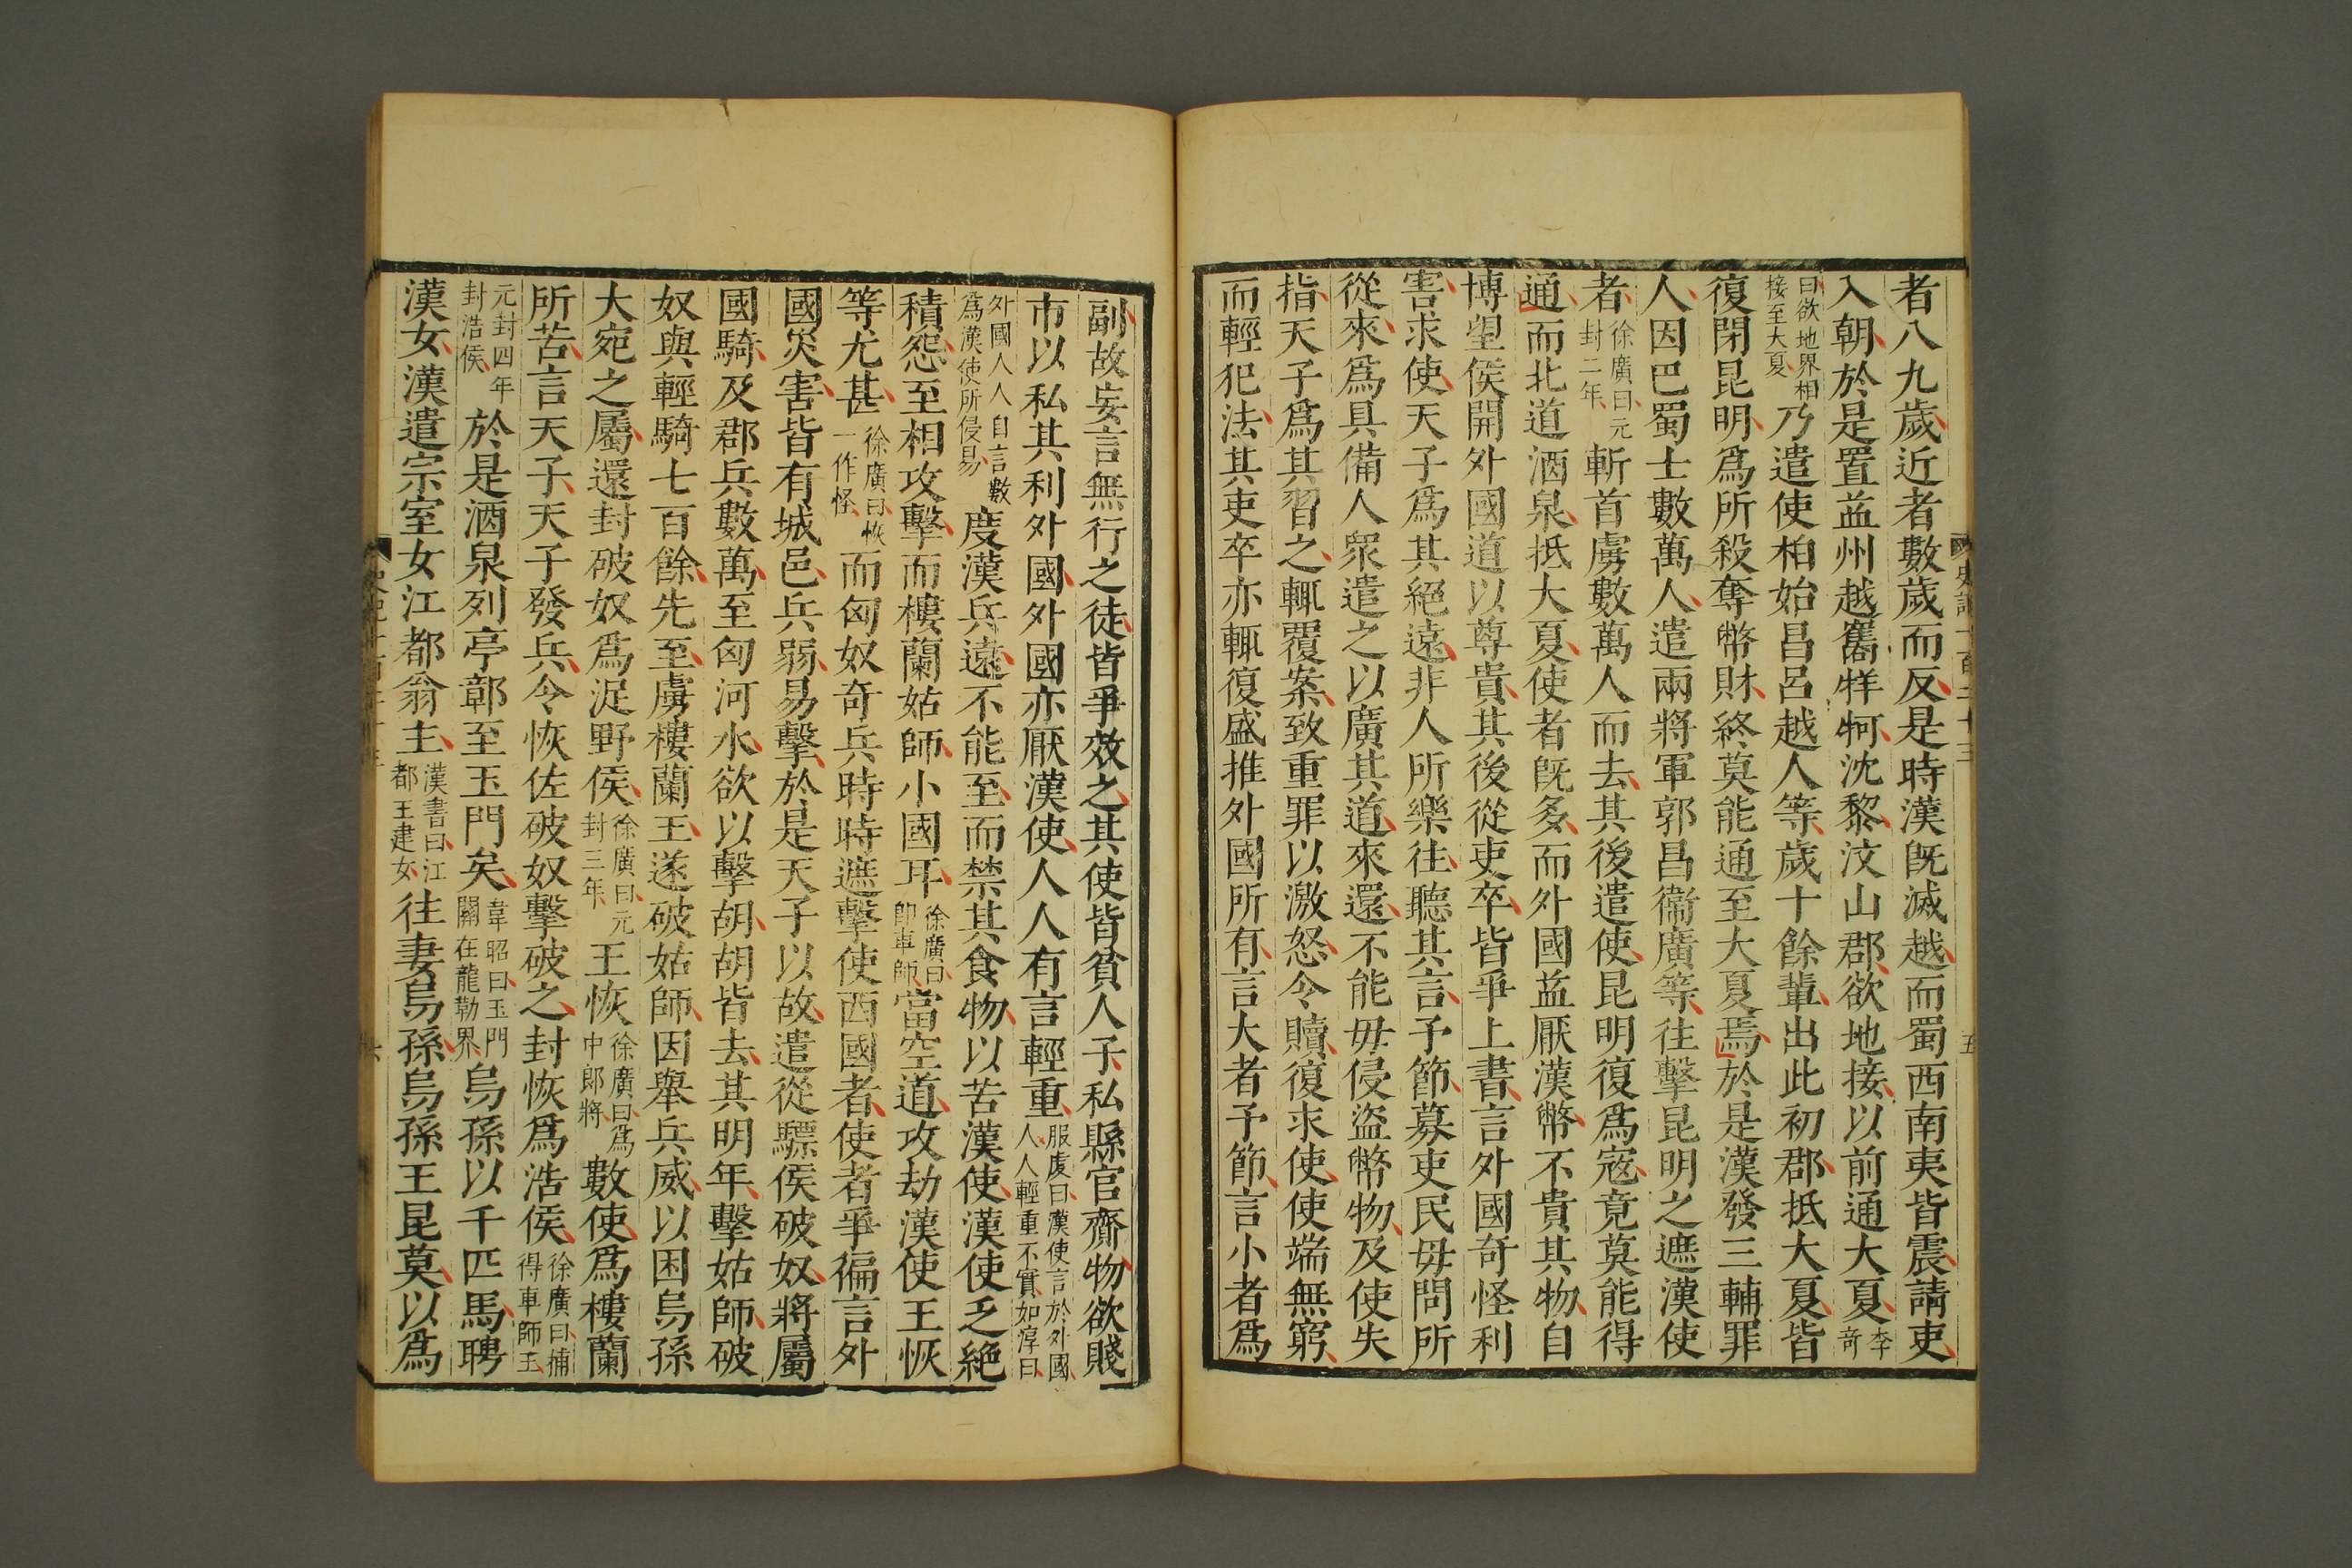 者八九歲近者數歲而反是時漢既滅越而蜀西南夷皆震請吏
入朝於是置益州越嶲牂牁沈黎汶山郡欲地接以前通大夏李奇
曰欲地界相接至大夏乃遣使柏始昌呂越人等歲十餘輩出此初郡抵大夏皆
復閉昆明爲所殺奪幣財終莫能通至大夏焉於是漢發三輔罪
人因巴蜀士數萬人遣兩將軍郭昌衞廣等往擊昆明之遮漢使
者徐廣曰元封二年斬首虜數萬人而去其後遣使昆明復爲寇竟莫能得
通而北道酒泉抵大夏使者既多而外國益厭漢幣不貴其物自
博望侯開外國道以尊貴其後從吏卒皆爭上書言外國奇怪利
害求使天子爲其絕遠非人所樂往聽其言予節募吏民毋問所
從來爲具備人衆遣之以廣其道來還不能毋侵盜幣物及使失
指天子爲其習之輒覆案致重罪以激怒令贖復求使使端無窮
而輕犯法其吏卒亦輒復盛推外國所有言大者予節言小者爲
史記一百二十三
五
副故妄言無行之徒皆爭效之其使皆貧人子私縣官齎物欲賤
市以私其利外國外國亦厭漢使人人有言輕重服虔曰漢使言於外國人人輕重不實如淳曰
外國人人自言數爲漢使所侵易度漢兵遠不能至而禁其食物以苦漢使漢使乏絕
積怨至相攻擊而樓蘭姑師小國耳徐廣曰卽車師當空道攻劫漢使王恢
等尤甚徐廣曰恢一作怪而匈奴奇兵時時遮擊使西國者使者爭徧言外
國災害皆有城邑兵弱易擊於是天子以故遣從驃侯破奴將屬
國騎及郡兵數萬至匈河水欲以擊胡胡皆去其明年擊姑師破
奴與輕騎七百餘先至虜樓蘭王遂破姑師因舉兵威以困烏孫
大宛之屬還封破奴爲浞野侯徐廣曰元封三年王恢徐廣曰爲中郎將數使爲樓蘭
所苦言天子天子發兵令恢佐破奴擊破之封恢爲浩侯徐廣曰捕得車師王
元封四年封浩侯於是酒泉列亭鄣至玉門矣韋昭曰玉門關在龍勒界烏孫以千匹馬聘
漢女漢遣宗室女江都翁主漢書曰江都王建女往妻烏孫烏孫王昆莫以爲
六